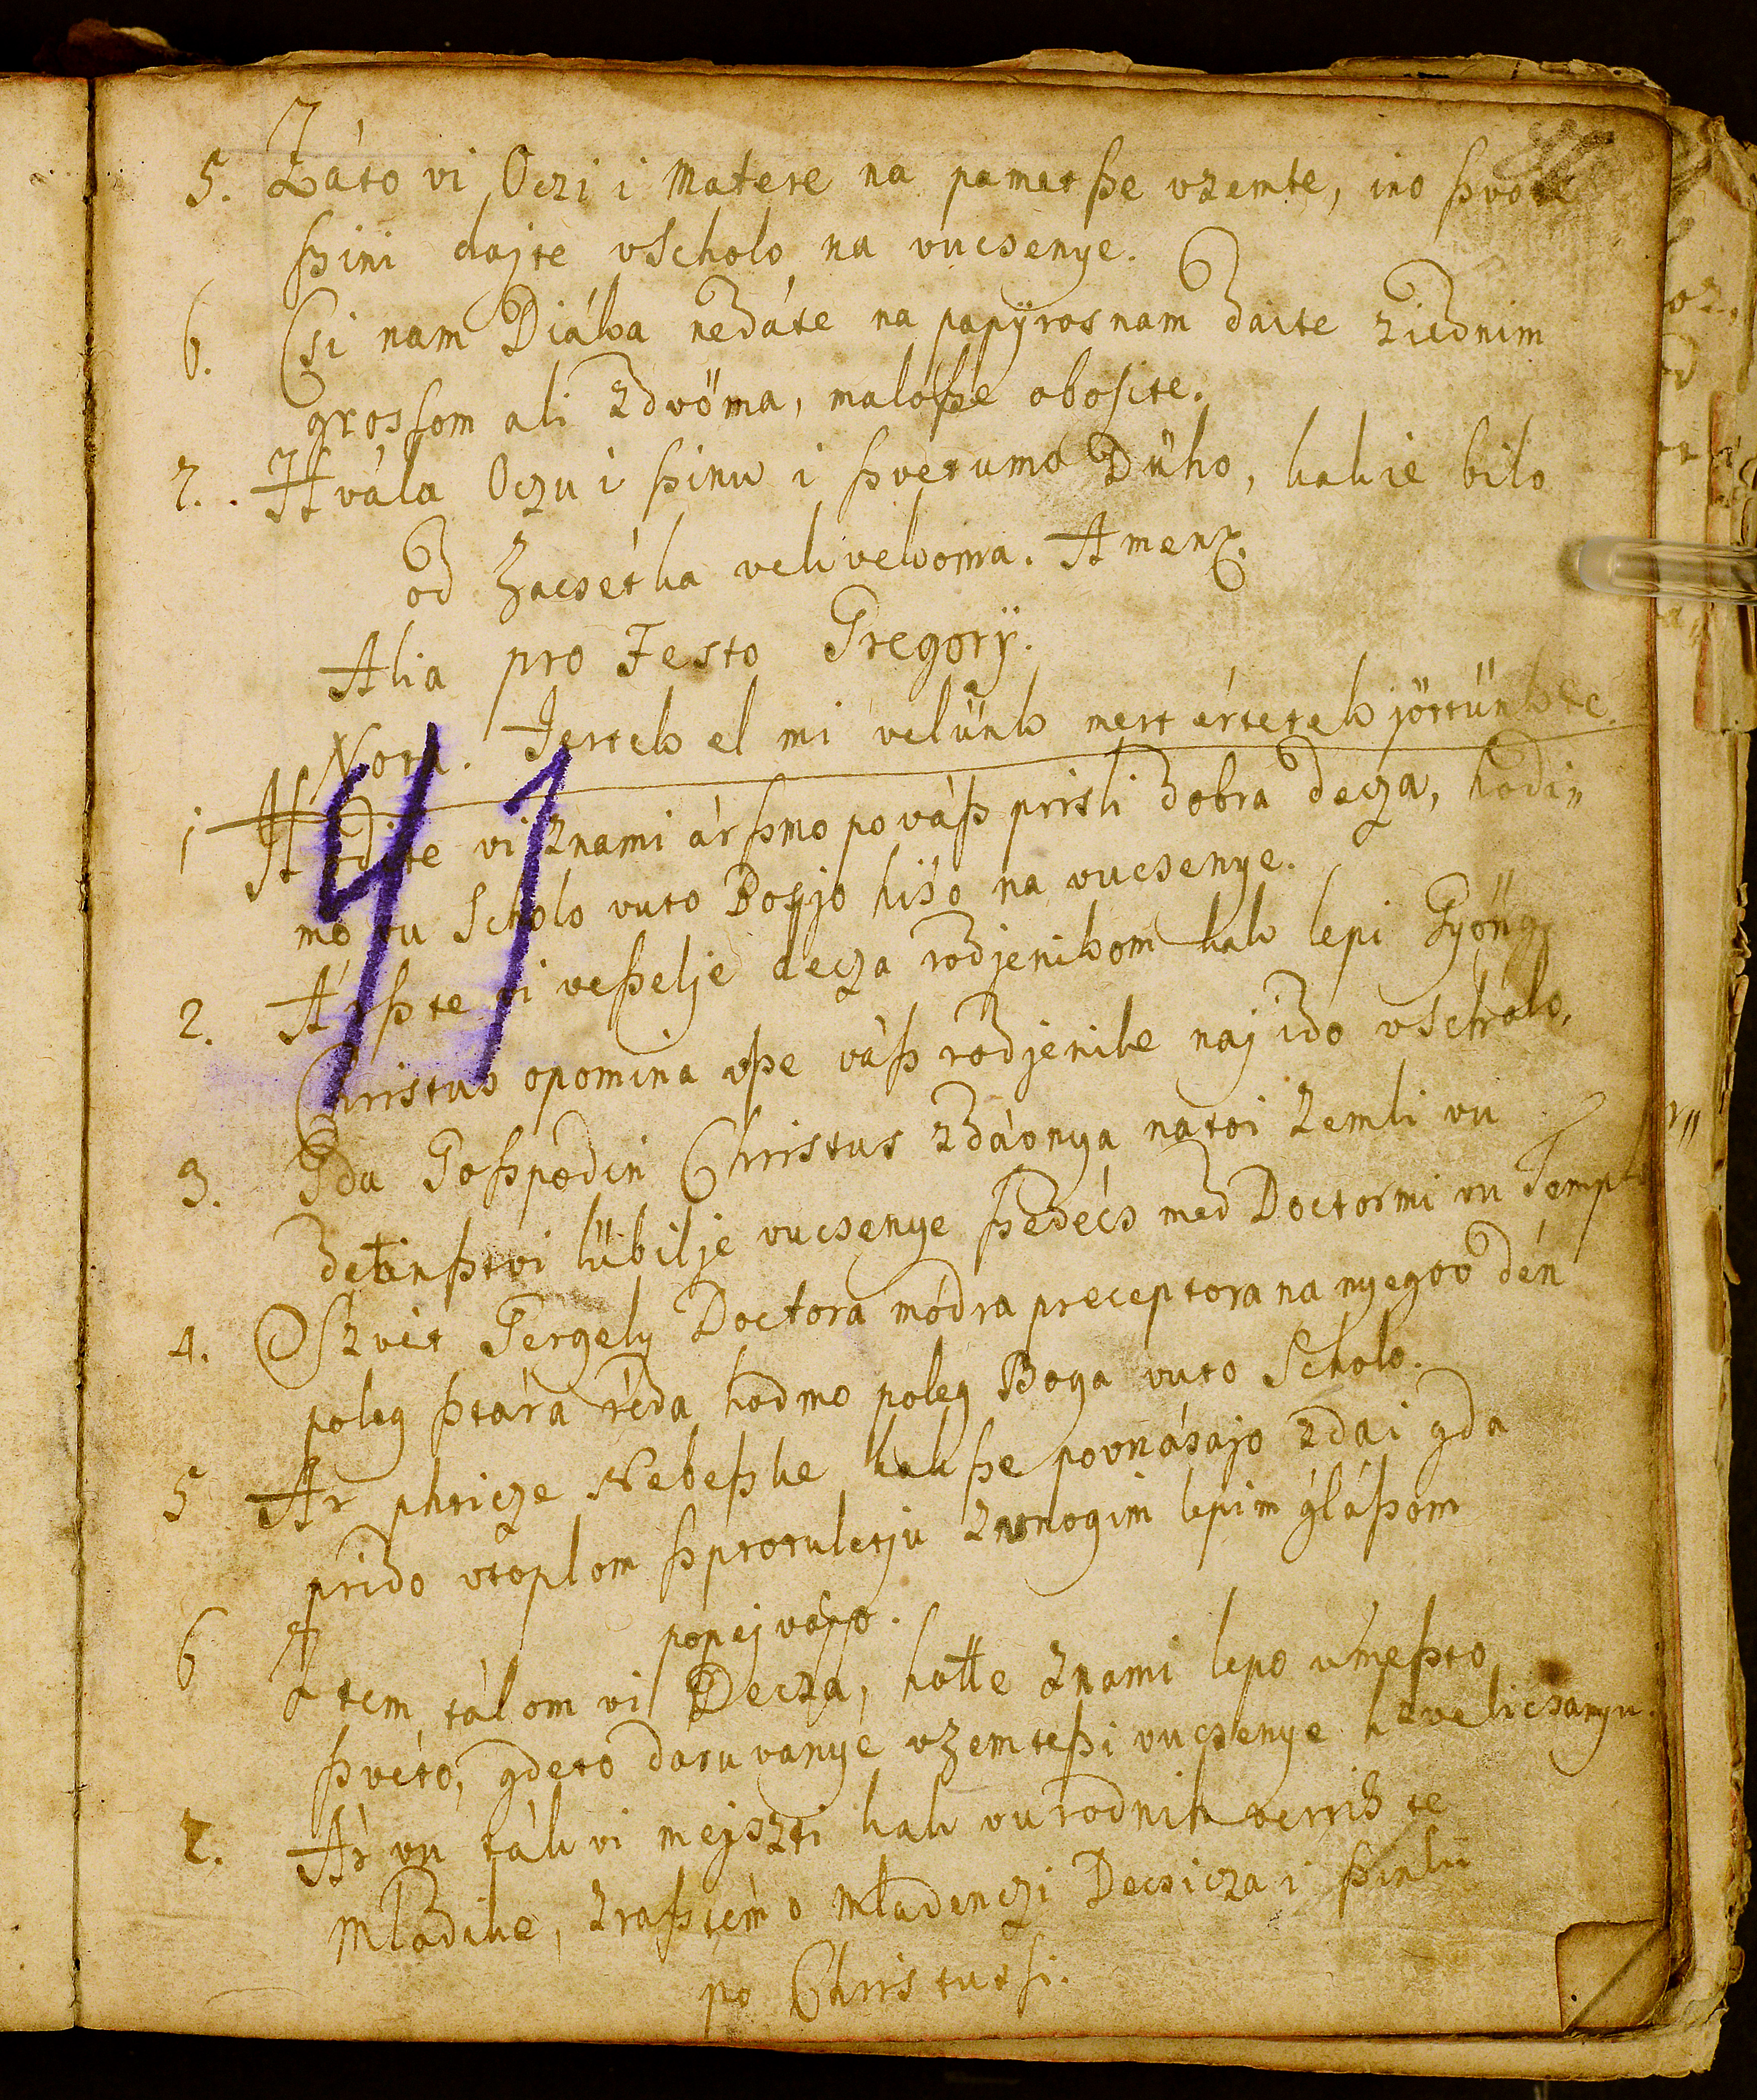 5. Záto vi Oczi i Matere na pamet ſze vzemte, ino ſzvoie
ſzini dajte vScholo na vucsenye.
6. Csi nam Diáka nedáte na papÿros nam daite ziednim
grossom ali zdvöma, maloſze obosite.
7. Hvála Oczu i ſzinu i ſzvetumo Dùho, kakie bilo
od Zacsétka vekvekoma. Amen.
Alia pro Festo Gregorÿ.
Nota. Jertek el mi velünk mert értetek jöttünk etc.
1 Hodite vi znami ár ſzmo po váſz prisli dobra decza, hodi„
mo vu Scholo vuto Bosjo hiso na vucsenye.
2. Árſzte vi veſzelje decza rodjenikom kak lepi Gyöngy
Christus opomina vſze váſz rodjenike naj ido vScholo.
3. Gda Goſzpodin Christus zdáonya natoi Zemli vu
detinſztvi lübilje vucsenye ſzedécs med Doctormi vu Templ
4. Szvét Gergely Doctora módra preceptora na nyegov dén
poleg ſztára réda hodmo poleg Boga vuto Scholo.
5 Ár phticze Nebeſzke kak ſze povnásajo zdai gda
prido vtoplom ſzprotuletju zmnogim lepim gláſzom
popejvajo.
6 Z tem tálom vi Decza, hotte znami lepo vmeſzto
ſzvéto, gdeto daruvanyé vzemteſzi vucsenye k zvelicsanyu.
7. Ár vu ták vi mejszti kak vu rodnik verris te
Mladike, zraſztémo Mladenczi Decsicza i ſzinkü
po Christusſi.
41